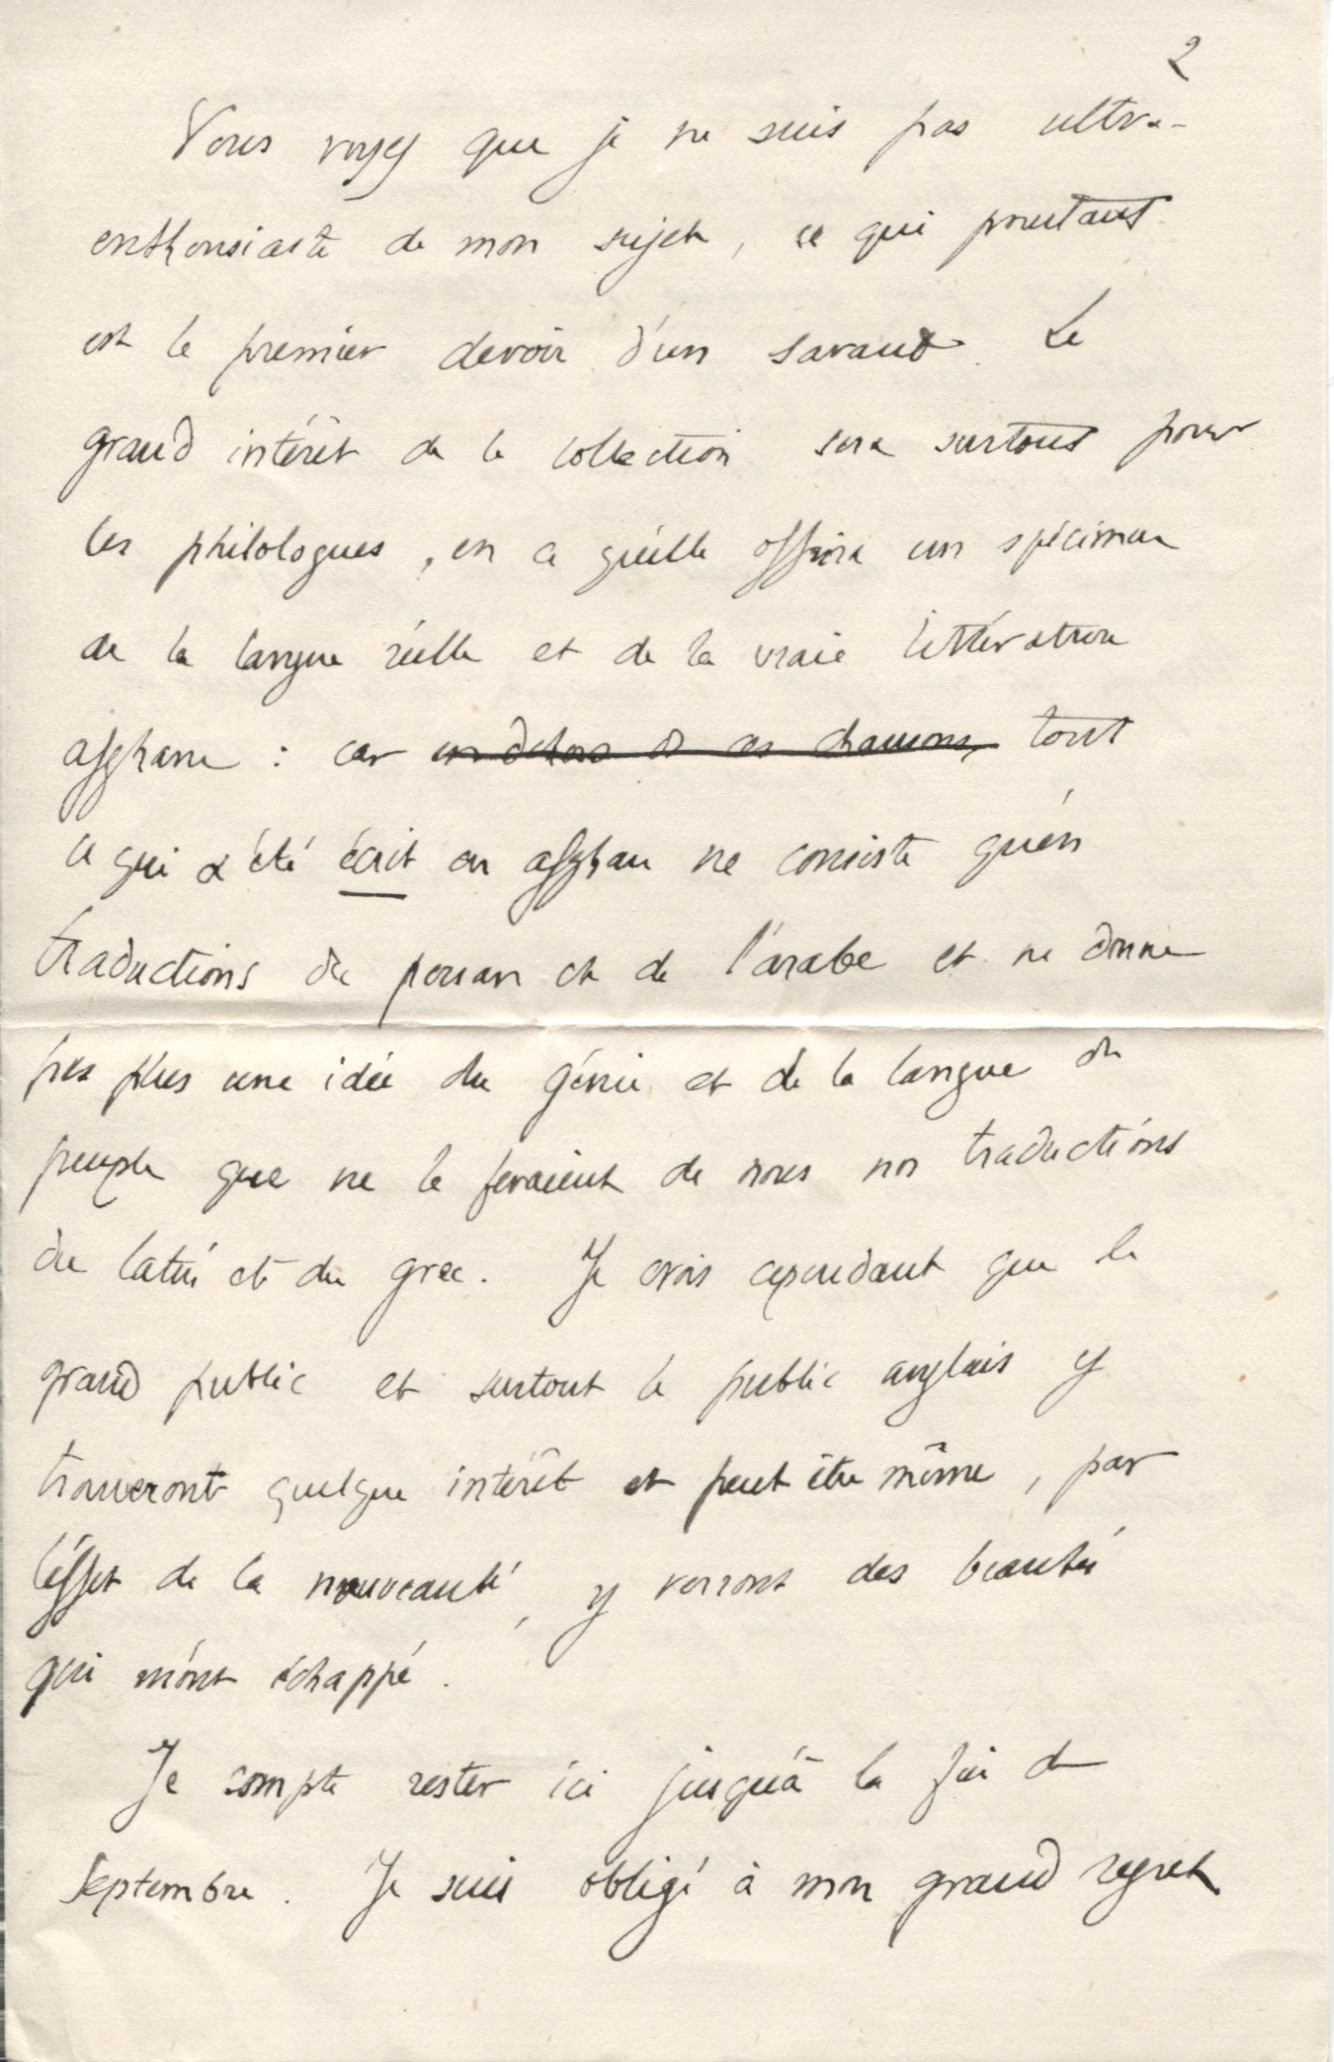 2
Vous voyez que je ne suis pas ultra-
enthousiaste de mon sujet, ce qui pourtant
est le premier devoir d'un savant. Le
grand intérêt de la collection sera surtout pour
les philologues, en ce qu'elle offrira un spécimen
de la langue réelle et de la vraie littérature
afghane : car en dehors de ces chansons, tout
ce qui a été écrit en afghan ne consiste qu'en
traductions du persan et de l'arabe et ne donne
pas plus une idée du génie et de la langue du
peuple que ne le feraient de nous nos traductions
du latin et du grec. Je crois cependant que le
grand public et surtout le public anglais y
trouveront quelque intérêt et peut être même, par
l'effet de la nouveauté, y verront des beautés
qui m'ont échappé.
Je compte rester ici jusqu'à la fin de
Septembre. Je suis obligé à mon grand regret